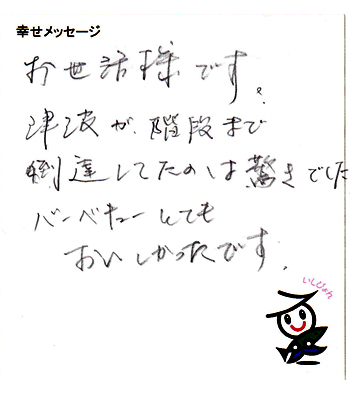 幸せメッセージ
お世話様です。
津波が、階段まで
到達してたのは驚きでした
バーベキューとても
おいしかったです。
いしぴょん